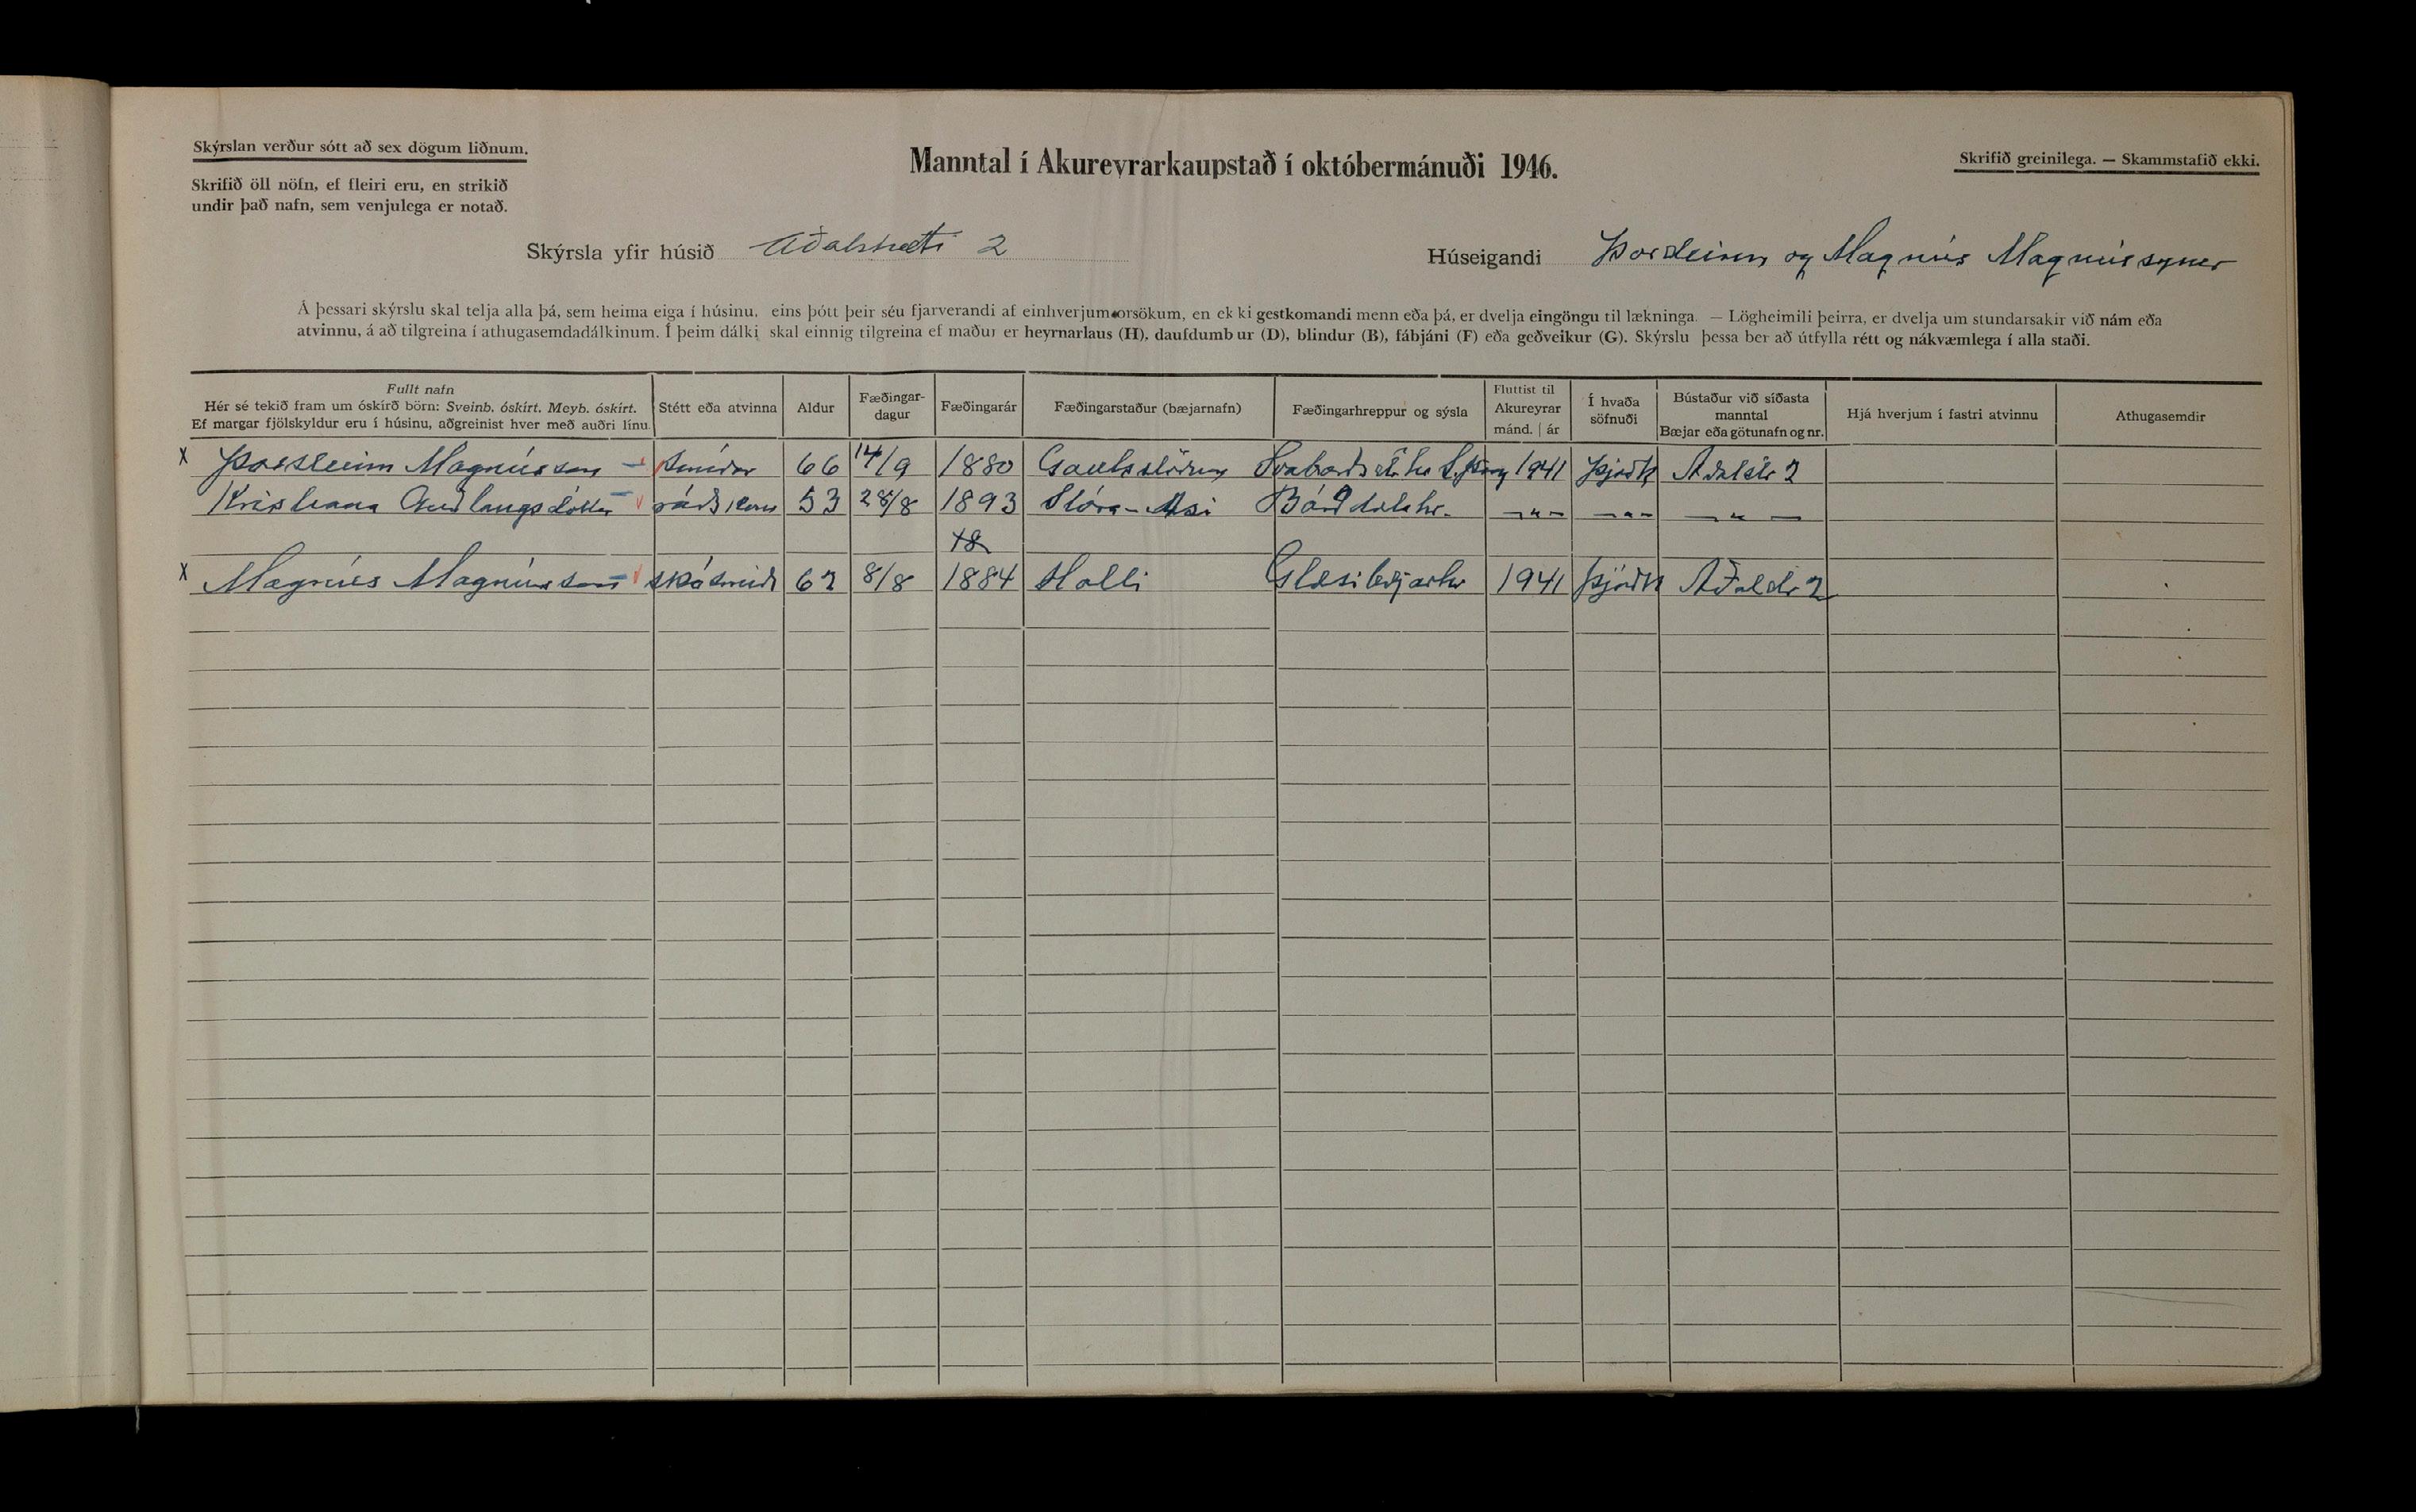 Skýrslan verður sótt að sex dögum liðnum.
Manntal í Akureyrarkaupstað í októbermánuði 1946.
Skrifið greinilega. — Skammstafið ekki.
Skrifið öll nöfn, ef fleiri eru, en strikið
undir það nafn, sem venjulega er notað.
Skýrsla yfir húsið Aðalstræti 2
Húseigandi Þorsteinn og Magnús Magnússynir
Á þessari skýrslu skal telja alla þá, sem heima eiga í húsinu, eins þótt þeir séu fjarverandi af einhverjum orsökum, en ekki gestkomandi menn eða þá, er dvelja eingöngu til lækninga. — Lögheimili þeirra, er dvelja um stundarsakir við nám eða
atvinnu, á að tilgreina í athugasemdadálkinum. Í þeim dálki skal einnig tilgreina ef maður er heyrnarlaus (H), daufdumbur (D), blindur (B), fábjáni (F) eða geðveikur (G). Skýrslu þessa ber að útfylla rétt og nákvæmlega í alla staði.
Fullt nafn
Hér sé tekið fram um óskírð börn: Sveinb. óskírt. Meyb. óskírt.
Ef margar fjölskyldur eru í húsinu, aðgreinist hver með auðri línu.
Stétt eða atvinna
Aldur
Fæðingar-
dagur
Fæðingarár
Fæðingarstaður (bæjarnafn)
Fæðingarhreppur og sýsla
Fluttist til
Akureyrar
mánd. | ár
Í hvaða
söfnuði
Bústaður við síðasta
manntal
Bæjar eða götunafn og nr.
Hjá hverjum í fastri atvinnu
Athugasemdir
x Þorsteinn Magnússon smiður 66 14/9 1880 1941 Þjóðk Aðalstr 2
Kristjana Guðlaugsdóttir ráðskona 53 28/8 1893 Stóra-Ási Bárðdælahr. —"— —"— —"—
x Magnús Magnússon skósmiður 62 8/8 1884 Halli Glæsibæjarhr 1941 Þjóðk Aðalstr 2